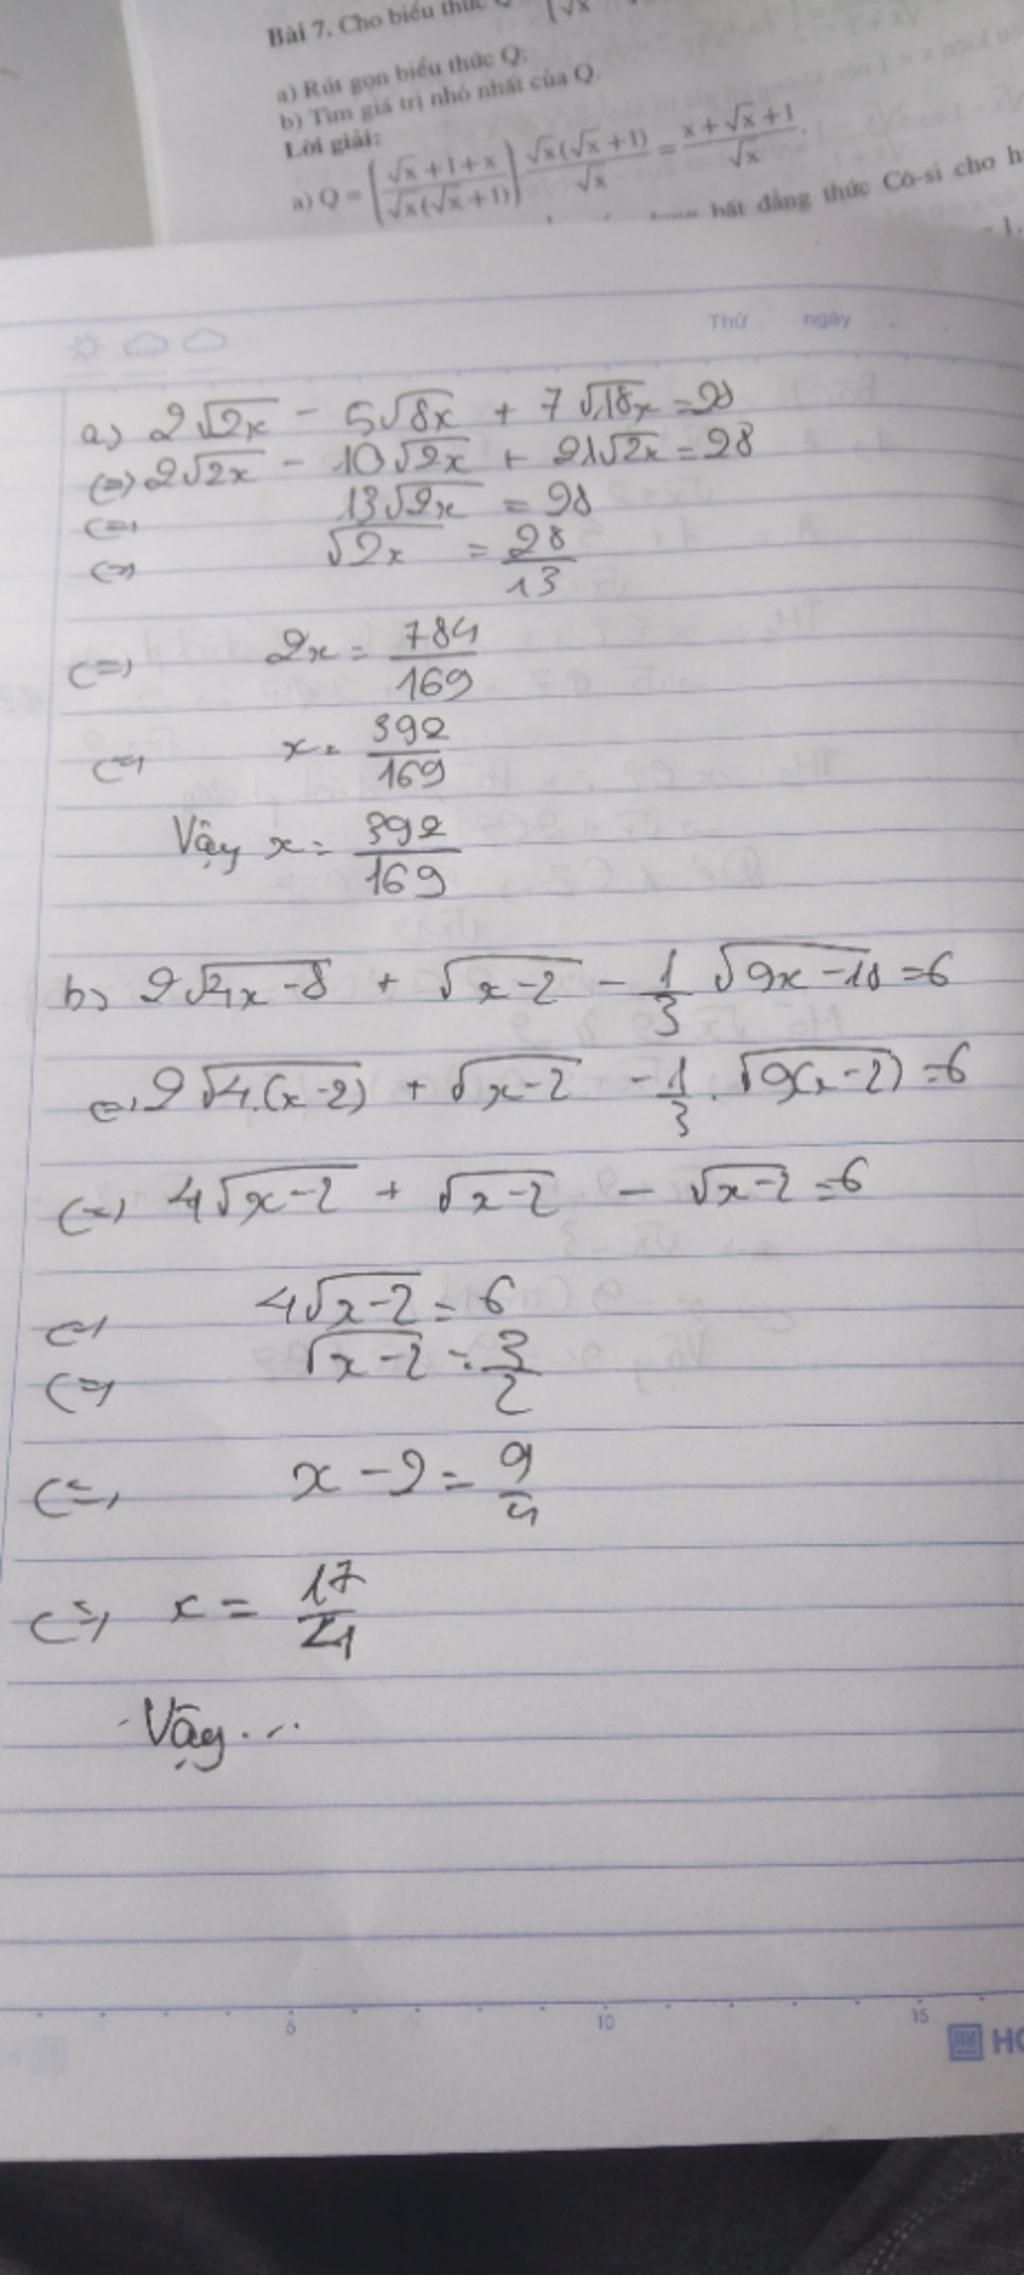 Bài 7. Cho biểu thức
a) Rút gọn biểu thức Q;
b) Tìm giá trị nhỏ nhất của Q.
Lời giải:
a) Q = (√x + 1 + x / √x(√x + 1)) √x(√x + 1) / √x = x + √x + 1 / √x.
bất đẳng thức Cô-si cho h
Thứ ngày
a) 2√2x - 5√8x + 7√18x = 28
(=) 2√2x - 10√2x + 21√2x = 28
(=) 13√2x = 28
(=) √2x = 28/13
(=) 2x = 784/169
(=) x = 392/169
Vậy x = 392/169
b) 2√4x-8 + √x-2 - 1/3 √9x-18 = 6
(=) 2√4.(x-2) + √x-2 - 1/3 . √9(x-2) = 6
(=) 4√x-2 + √x-2 - √x-2 = 6
(=) 4√x-2 = 6
(=) √x-2 = 3/2
(=) x - 2 = 9/4
(=) x = 17/4
Vậy...
5 10 15
HO